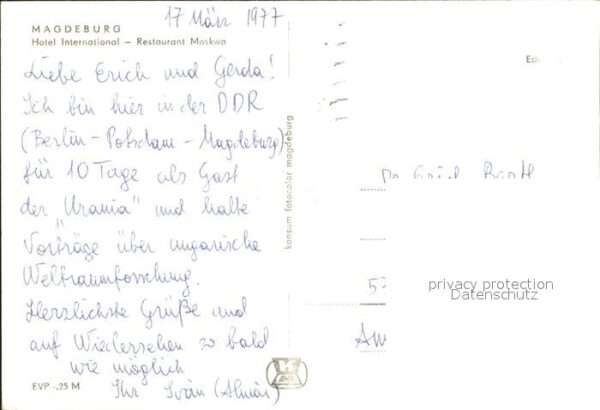 17 März 1977
MAGDEBURG
Hotel International — Restaurant Moskwa
Liebe Erich und Gerda!
Ich bin hier in der DDR
(Berlin - Potsdam - Magdeburg)
für 10 Tage als Gast
der „Urania" und halte
Vorträge über ungarische
Weltraumforschung.
Herzlichste Grüße und
auf Wiedersehen so bald
wie möglich
Ihr Iván (Almár)
EVP -,25 M
konsum fotocolor magdeburg
privacy protection
Datenschutz